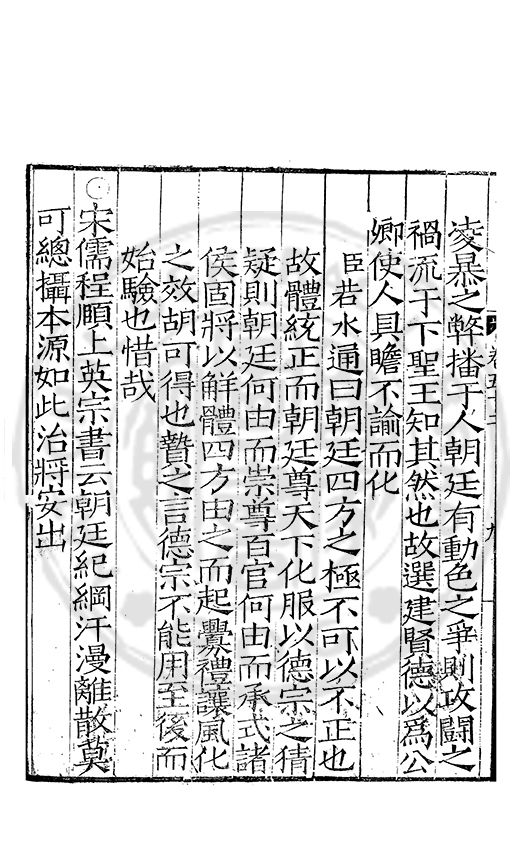 凌暴之弊播于人朝廷有動色之爭則攻鬪之
禍流于下聖王知其然也故選建賢德以爲公
卿使人具瞻不諭而化
臣若水通曰朝廷四方之極不可以不正也
故體統正而朝廷尊天下化服以德宗之猜
疑則朝廷何由而崇尊百官何由而承式諸
侯固將以解體四方由之而起釁禮讓風化
之效胡可得也贄之言德宗不能用至後而
始驗也惜哉
宋儒程頤上英宗書云朝廷紀綱汗漫離散莫
可總攝本源如此治將安出